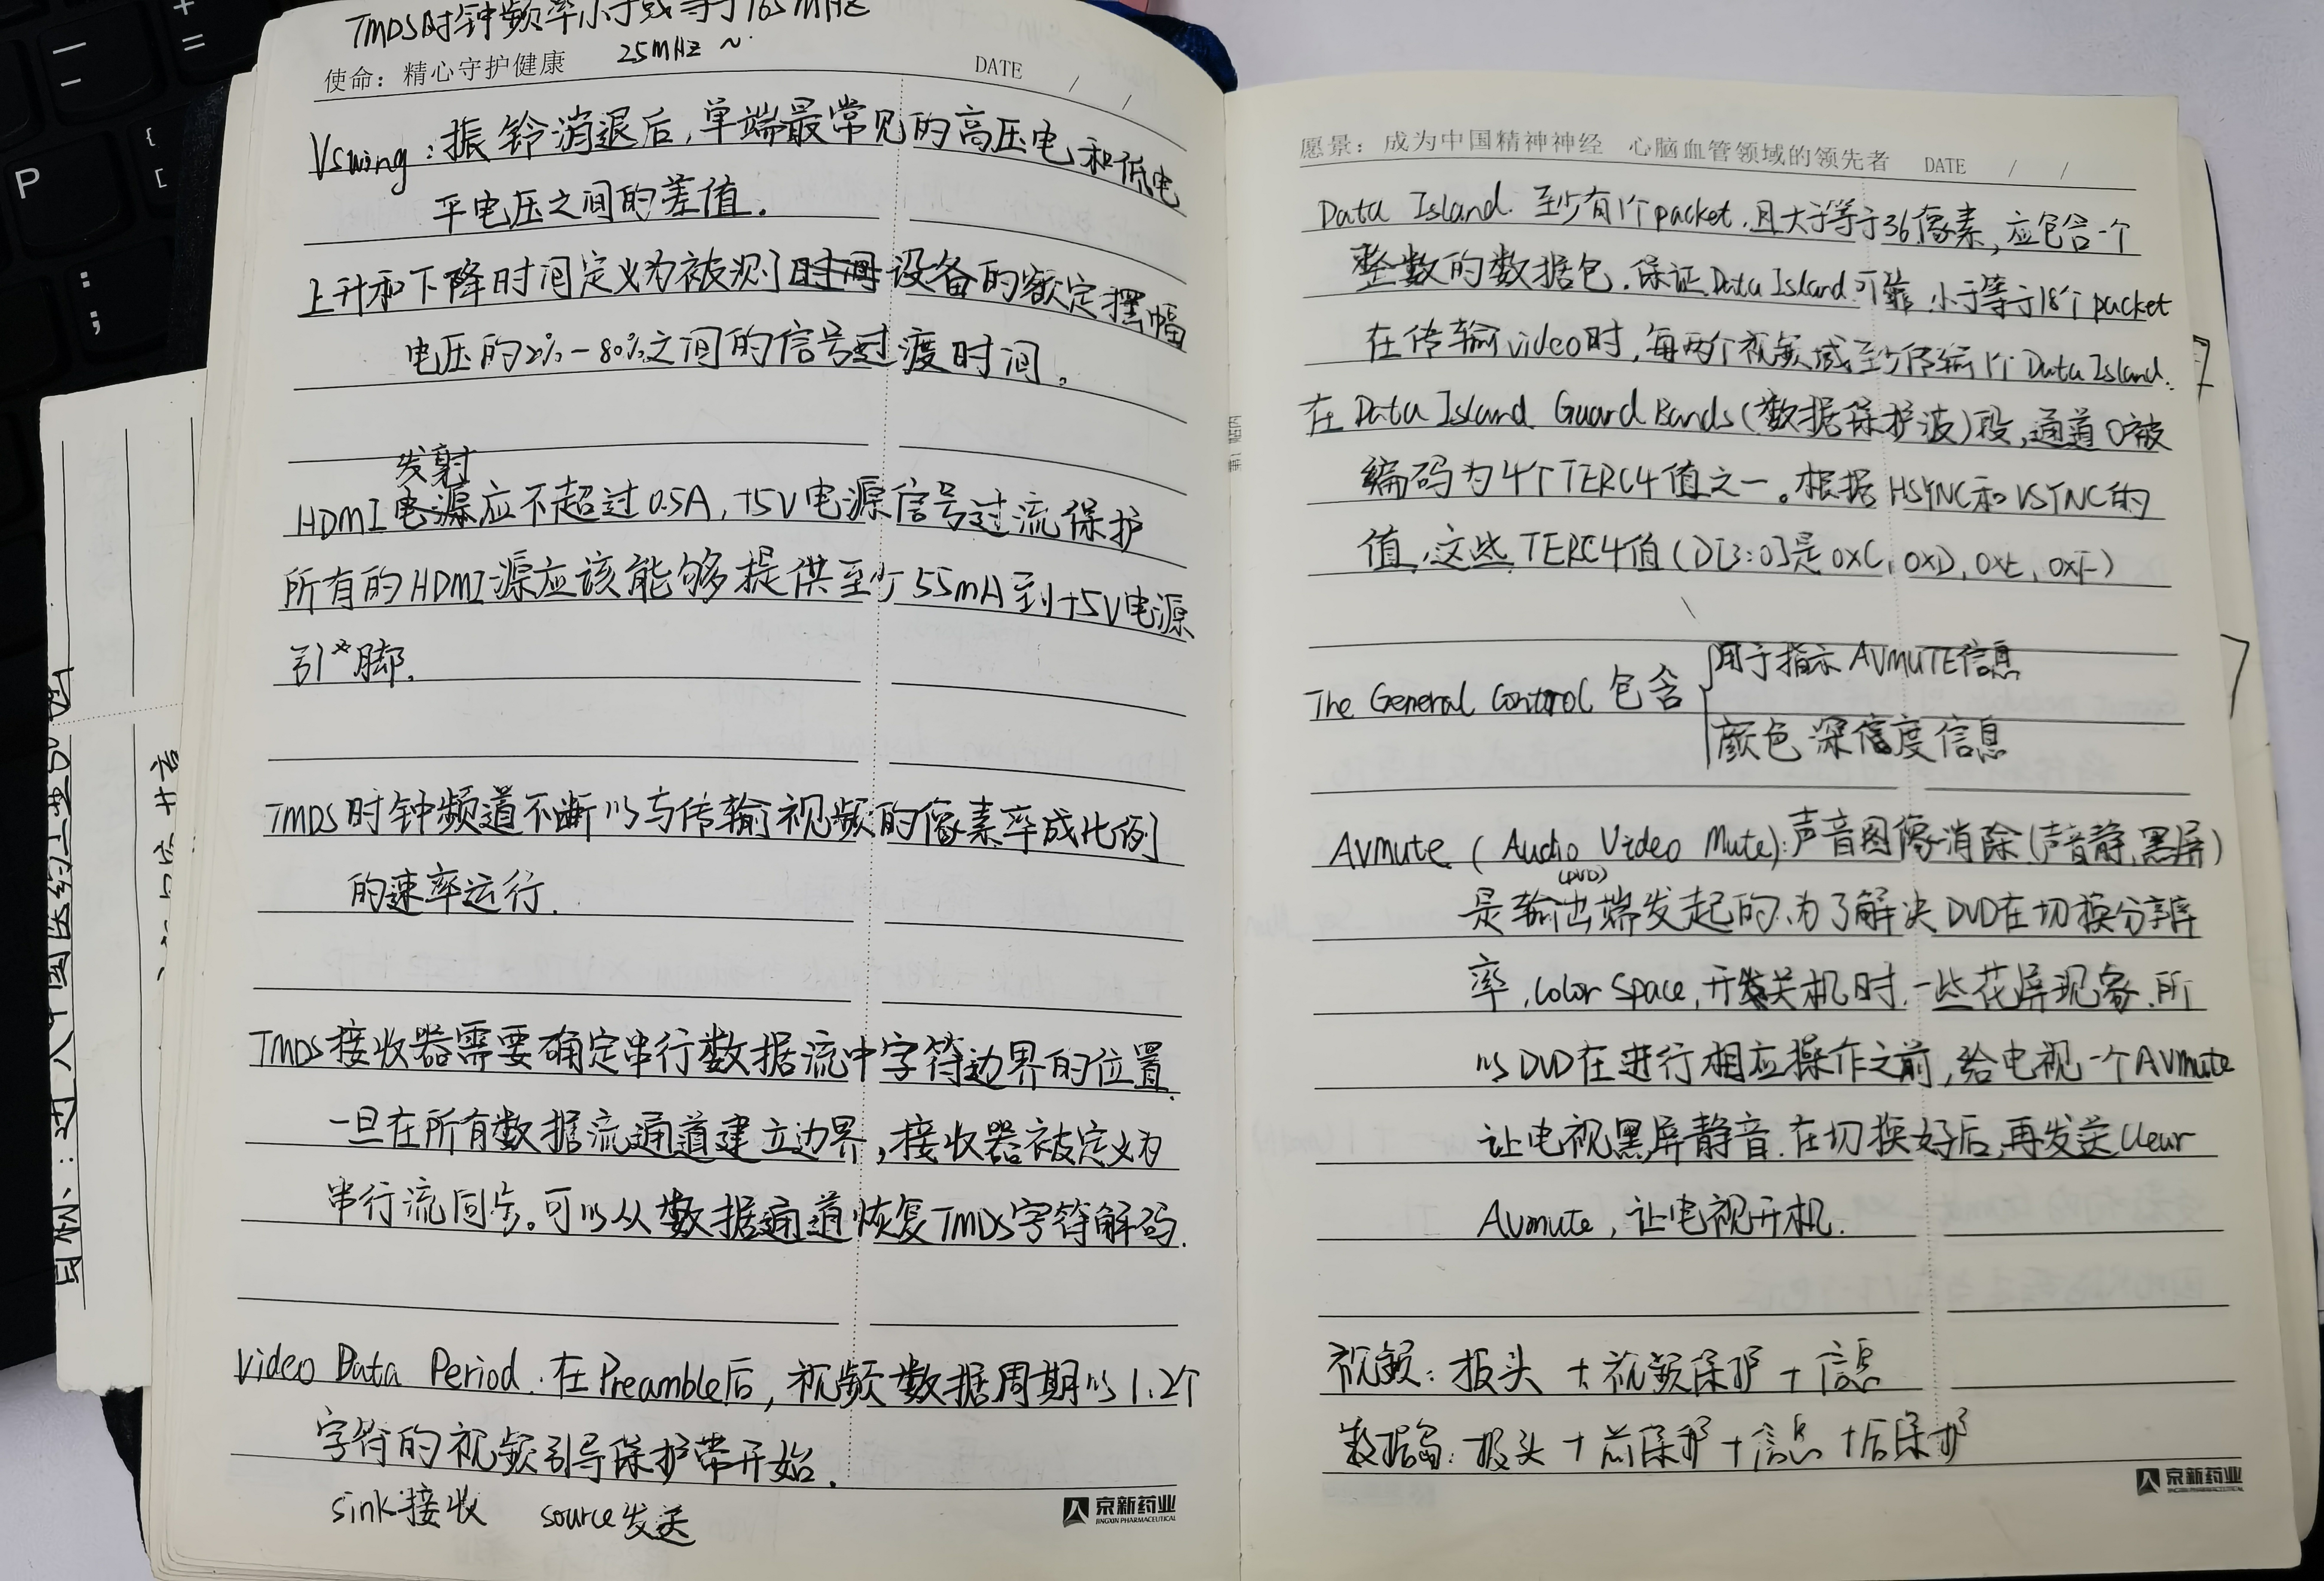 TMDS时钟频率小于或等于165MHZ
25MHZ ~
使命：精心守护健康
DATE / /
Vswing：振铃消退后,单端最常见的高压电和低电
平电压之间的差值.
上升和下降时间定义为被测时间设备的额定摆幅
电压的20%-80%之间的信号过渡时间。
发射
HDMI电源应不超过0.5A,+5V电源信号过流保护
所有的HDMI源应该能够提供至少55mA到+5V电源
引脚.
TMDS时钟频道不断以与传输视频的像素率成比例
的速率运行.
TMDS接收器需要确定串行数据流中字符边界的位置.
一旦在所有数据流通道建立边界,接收器被定义为
串行流同步。可以从数据通道恢复TMDS字符解码.
Video Data Period.在Preamble后,视频数据周期以1.2个
字符的视频引导保护带开始.
sink接收 source发送
京新药业
JINGXIN PHARMACEUTICAL
愿景：成为中国精神神经 心脑血管领域的领先者 DATE / /
Data Island.至少有1个packet.且大于等于36像素,应包含一个
整数的数据包.保证Data Island可靠.小于等于18个packet
在传输video时,每两个视频域至少传输1个Data Island.
在Data Island Guard Bands(数据保护波)段,通道0被
编码为4个TERC4值之一。根据HSYNC和VSYNC的
值,这些TERC4值(D[3:0]是0xC,0xD,0xE,0xF)
用于指示AVMUTE信息
The General Control包含
颜色深信度信息
Avmute(Audio Video Mute):声音图像消除(声音静,黑屏)
(DVD)
是输出端发起的.为了解决DVD在切换分辨
率,Color Space,开关机时,一些花屏现象.所
以DVD在进行相应操作之前,给电视一个AVmute
让电视黑屏静音.在切换好后,再发送Clear
Avmute,让电视开机.
视频:报头+视频保护+信息
数据岛:报头+前保护+信息+后保护
京新药业
JINGXIN PHARMACEUTICAL